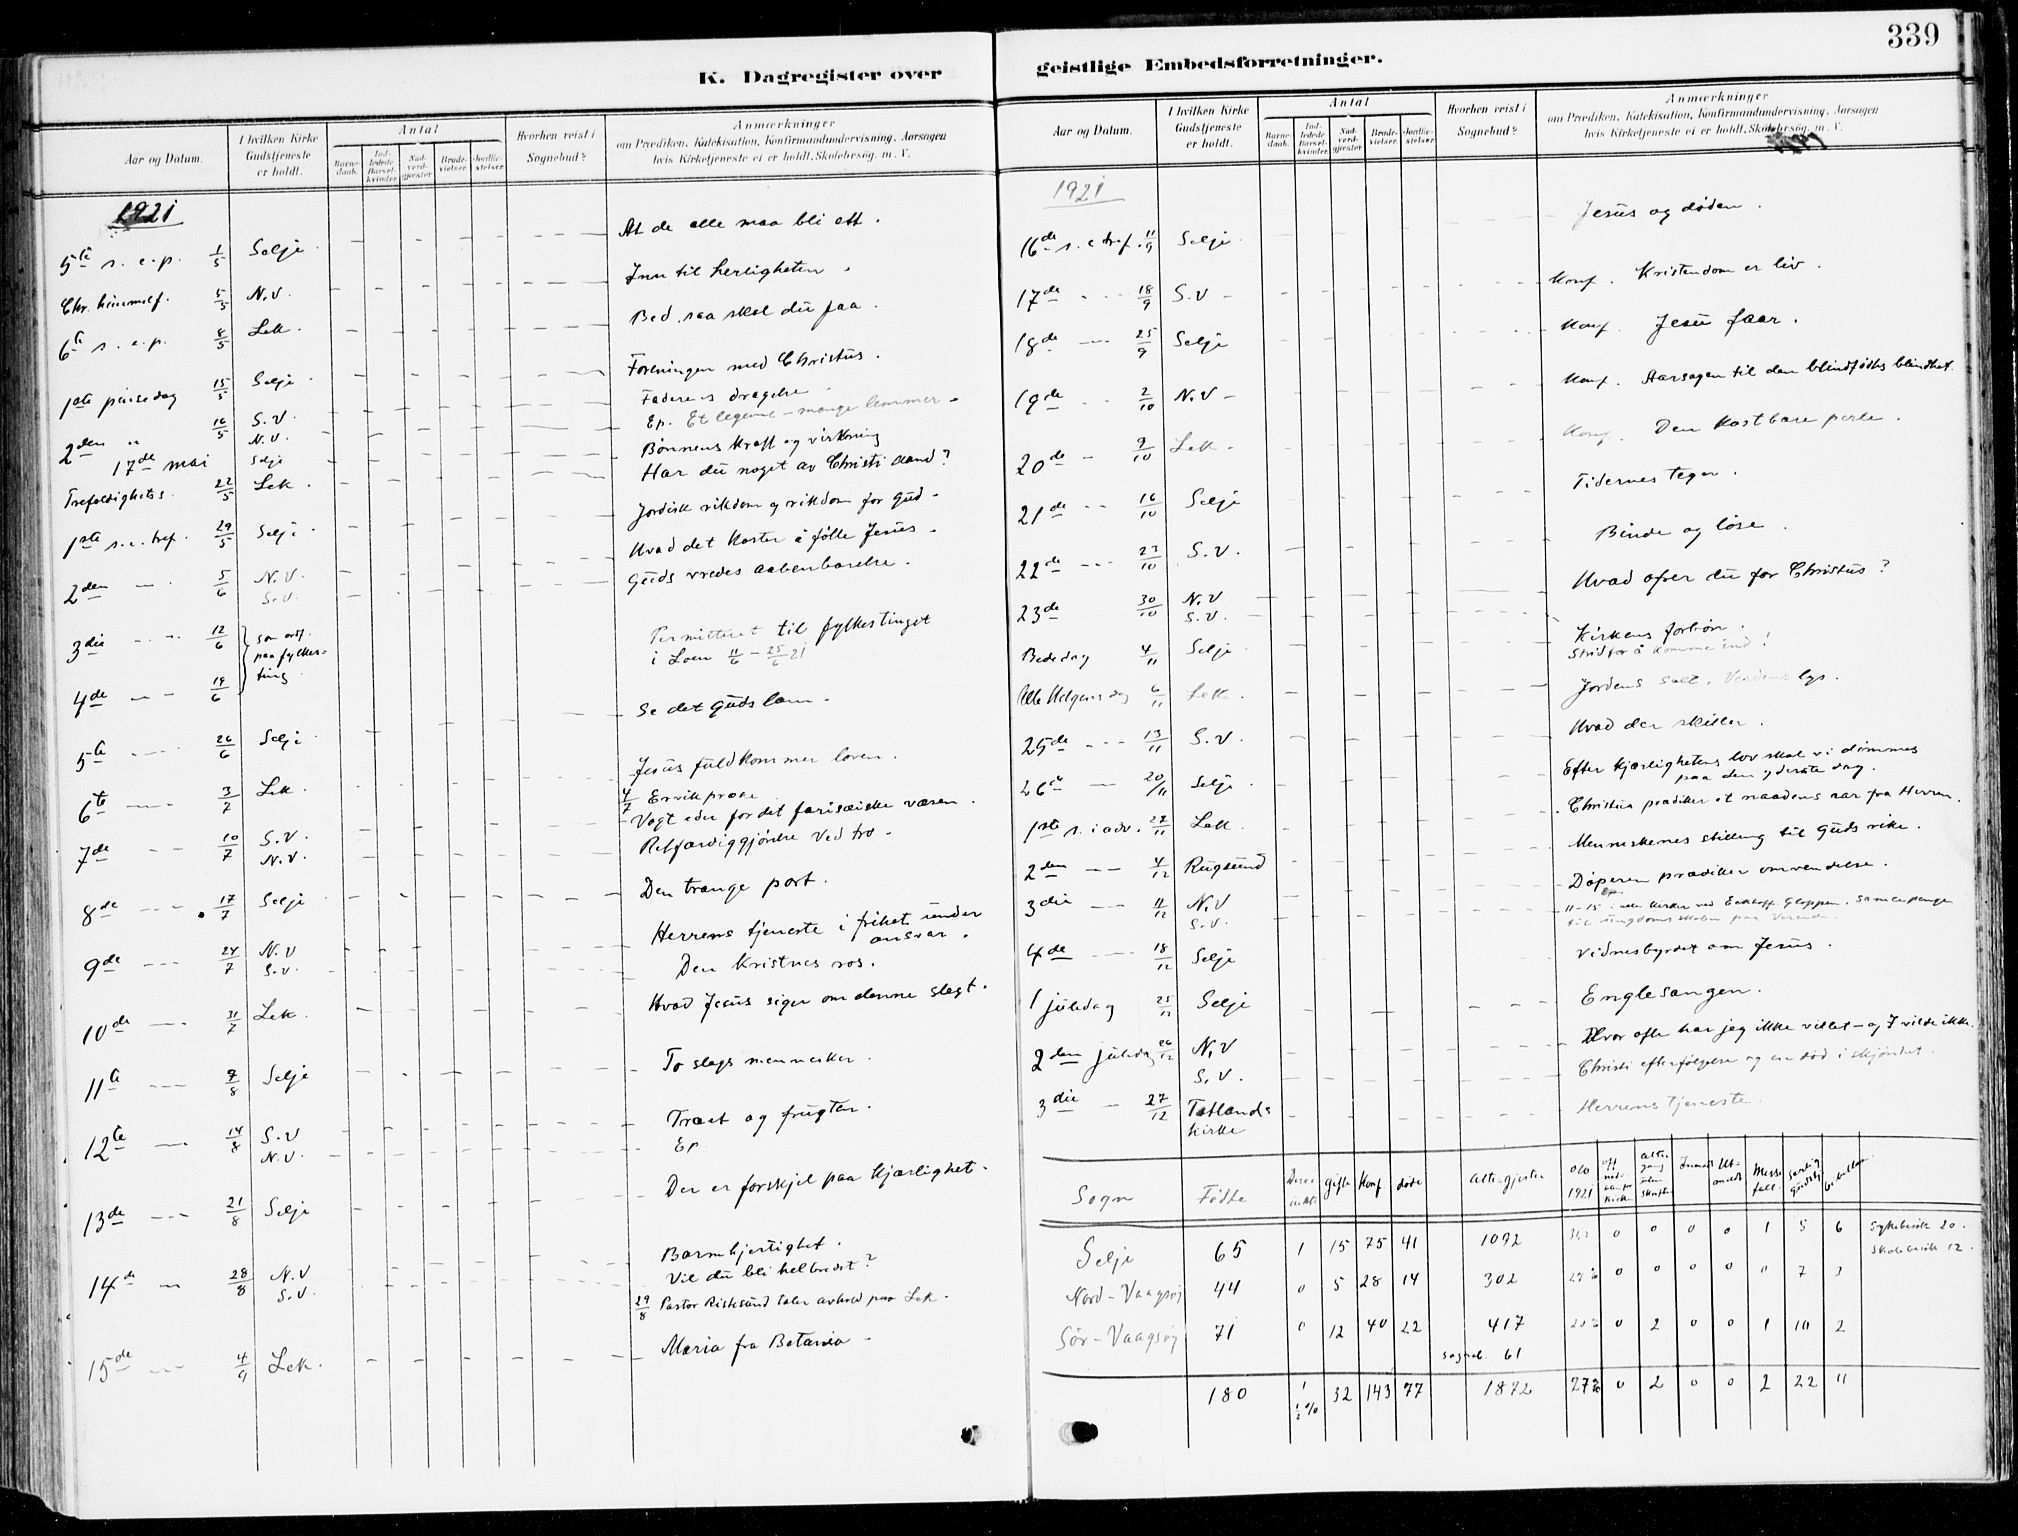 339
K. Dagregister over geistlige Embedsforretninger.
Aar og Datum.
I hvilken Kirke Gudstjeneste er holdt.
Antal
Barnedaab.
Indledede Barselkvinder.
Nadverdgjester
Brudevielser.
Jordfæstelser.
Hvorhen reist i Sognebud?
Anmærkninger
om Prædiken, Katekisation, Konfirmandundervisning, Aarsagen
hvis Kirketjeneste ei er holdt, Skolebesøg, m. V.
1921
5te s. e. p. 1/5 Selje. At de alle maa bli ett.
Chr. himmelf. 5/5 N.V. Inn til herligheten.
6te s. e. p. 8/5 Lek. Bed, saa skal du faa.
1ste pinsedag 15/5 Selje. Foreningen med Christus.
2den " 16/5 S.V. Faderens dragelse
N.V. Ep. Et legeme - mange lemmer.
17de mai Selje Bønnens kraft og virkning
Trefoldighets. 22/5 Lek. Har du noget av Christi aand?
1ste s. e. tref. 29/5 Selje. Jordisk rikdom og rikdom for Gud.
2den 5/6 N.V. Hvad det koster å følle Jesus.
S.V. Guds vredes aabenbarelse.
3die 12/6 som ordf. paa fylkesting. Permitteret til fylkestinget
4de 19/6 i Loen 11/6 - 25/6 21
5te 26/6 Selje. Se det Guds lam.
6te 3/7 Lek. Jesus fuldkommer loven.
4/7 Ervik
7de 10/7 S.V. Vogt eder for det fariseiske væsen.
N.V. Retfærdiggjørelse ved tro.
8de 17/7 Selje. Den trange port.
9de 24/7 N.V. Herrens tjeneste i frihet under ansvar.
S.V. Den kristnes ros.
10de 31/7 Lek. Hvad Jesus siger om denne slegt.
11te 7/8 Selje To slags mennesker.
12te 14/8 S.V Træet og frugten.
N.V. Ep
13de 21/8 Selje Der er forskjel paa kjærlighet.
14de 28/8 N.V Barmhjertighet.
S.V. Vil du bli helbredet?
29/8 Pastor Risksund taler avhold paa Lek.
15de 4/9 Lek. Maria fra Betania
Aar og Datum.
I hvilken Kirke Gudstjeneste er holdt.
Antal
Barnedaab.
Indledede Barselkvinder.
Nadverdgjester
Brudevielser.
Jordfæstelser.
Hvorhen reist i Sognebud?
Anmærkninger
om Prædiken, Katekisation, Konfirmandundervisning, Aarsagen
hvis Kirketjeneste ei er holdt, Skolebesøg, m. V.
1921
16de s. e. tref. 11/9 Selje. Jesus og døden.
17de 18/9 S.V Konf. Kristendom er liv.
18de 25/9 Selje Konf. Jesu faar.
19de 2/10 N.V Konf. Aarsagen til den blindfødtes blindhet.
20de 9/10 Lek. Konf. Den kostbare perle.
21de 16/10 Selje Tidernes tegn.
22de 23/10 S.V. Binde og løse.
23de 30/10 N.V Hvad ofrer du for Christus?
S.V.
Bededag 4/11 Selje. Kirkens forbøn.
Strid for å komme ind!
Alle Helgens dag 6/11 Lek. Jordens salt. Verdens lys.
25de 13/11 S.V. Hvad der skiller.
26te 20/11 Selje. Efter kjærlighetens lov skal vi dømmes
paa den yderste dag.
1ste s. i adv. 27/11 Lek. Christus prædiker et naadens aar fra Herren.
2den 4/12 Rugsund Menneskenes stilling til Guds rike.
3die 11/12 N.V Døperen prædiker omvendelse.
S.V. 11-15 i alle kirker ved Gloppen.
4de 18/12 Selje Vidnesbyrdet om Jesus.
1 juledag 25/12 Selje Englesangen.
2den juledag 26/12 N.V Hvor ofte har jeg ikke villet - og I vilde ikke.
S.V. Christi efterfølgelse og en død i skjønhet.
3die 27/12 Totlands kirke Herrens tjeneste.
Sogn Fødte gifte Konf døde altergjester 1921
Selje 65 1 15 75 41 1092 0 0 0 0 1 5 6 Sykebesøk 20.
Skolebesøk 12.
Nord-Vaagsøy 44 0 5 28 14 302 0 0 0 0 0 7 3
Sør-Vaagsøy 71 0 12 40 22 417 0 2 0 0 1 10 2
sogneb. 61
180 1 32 143 77 1872 0 2 0 0 2 22 11
1/2 %